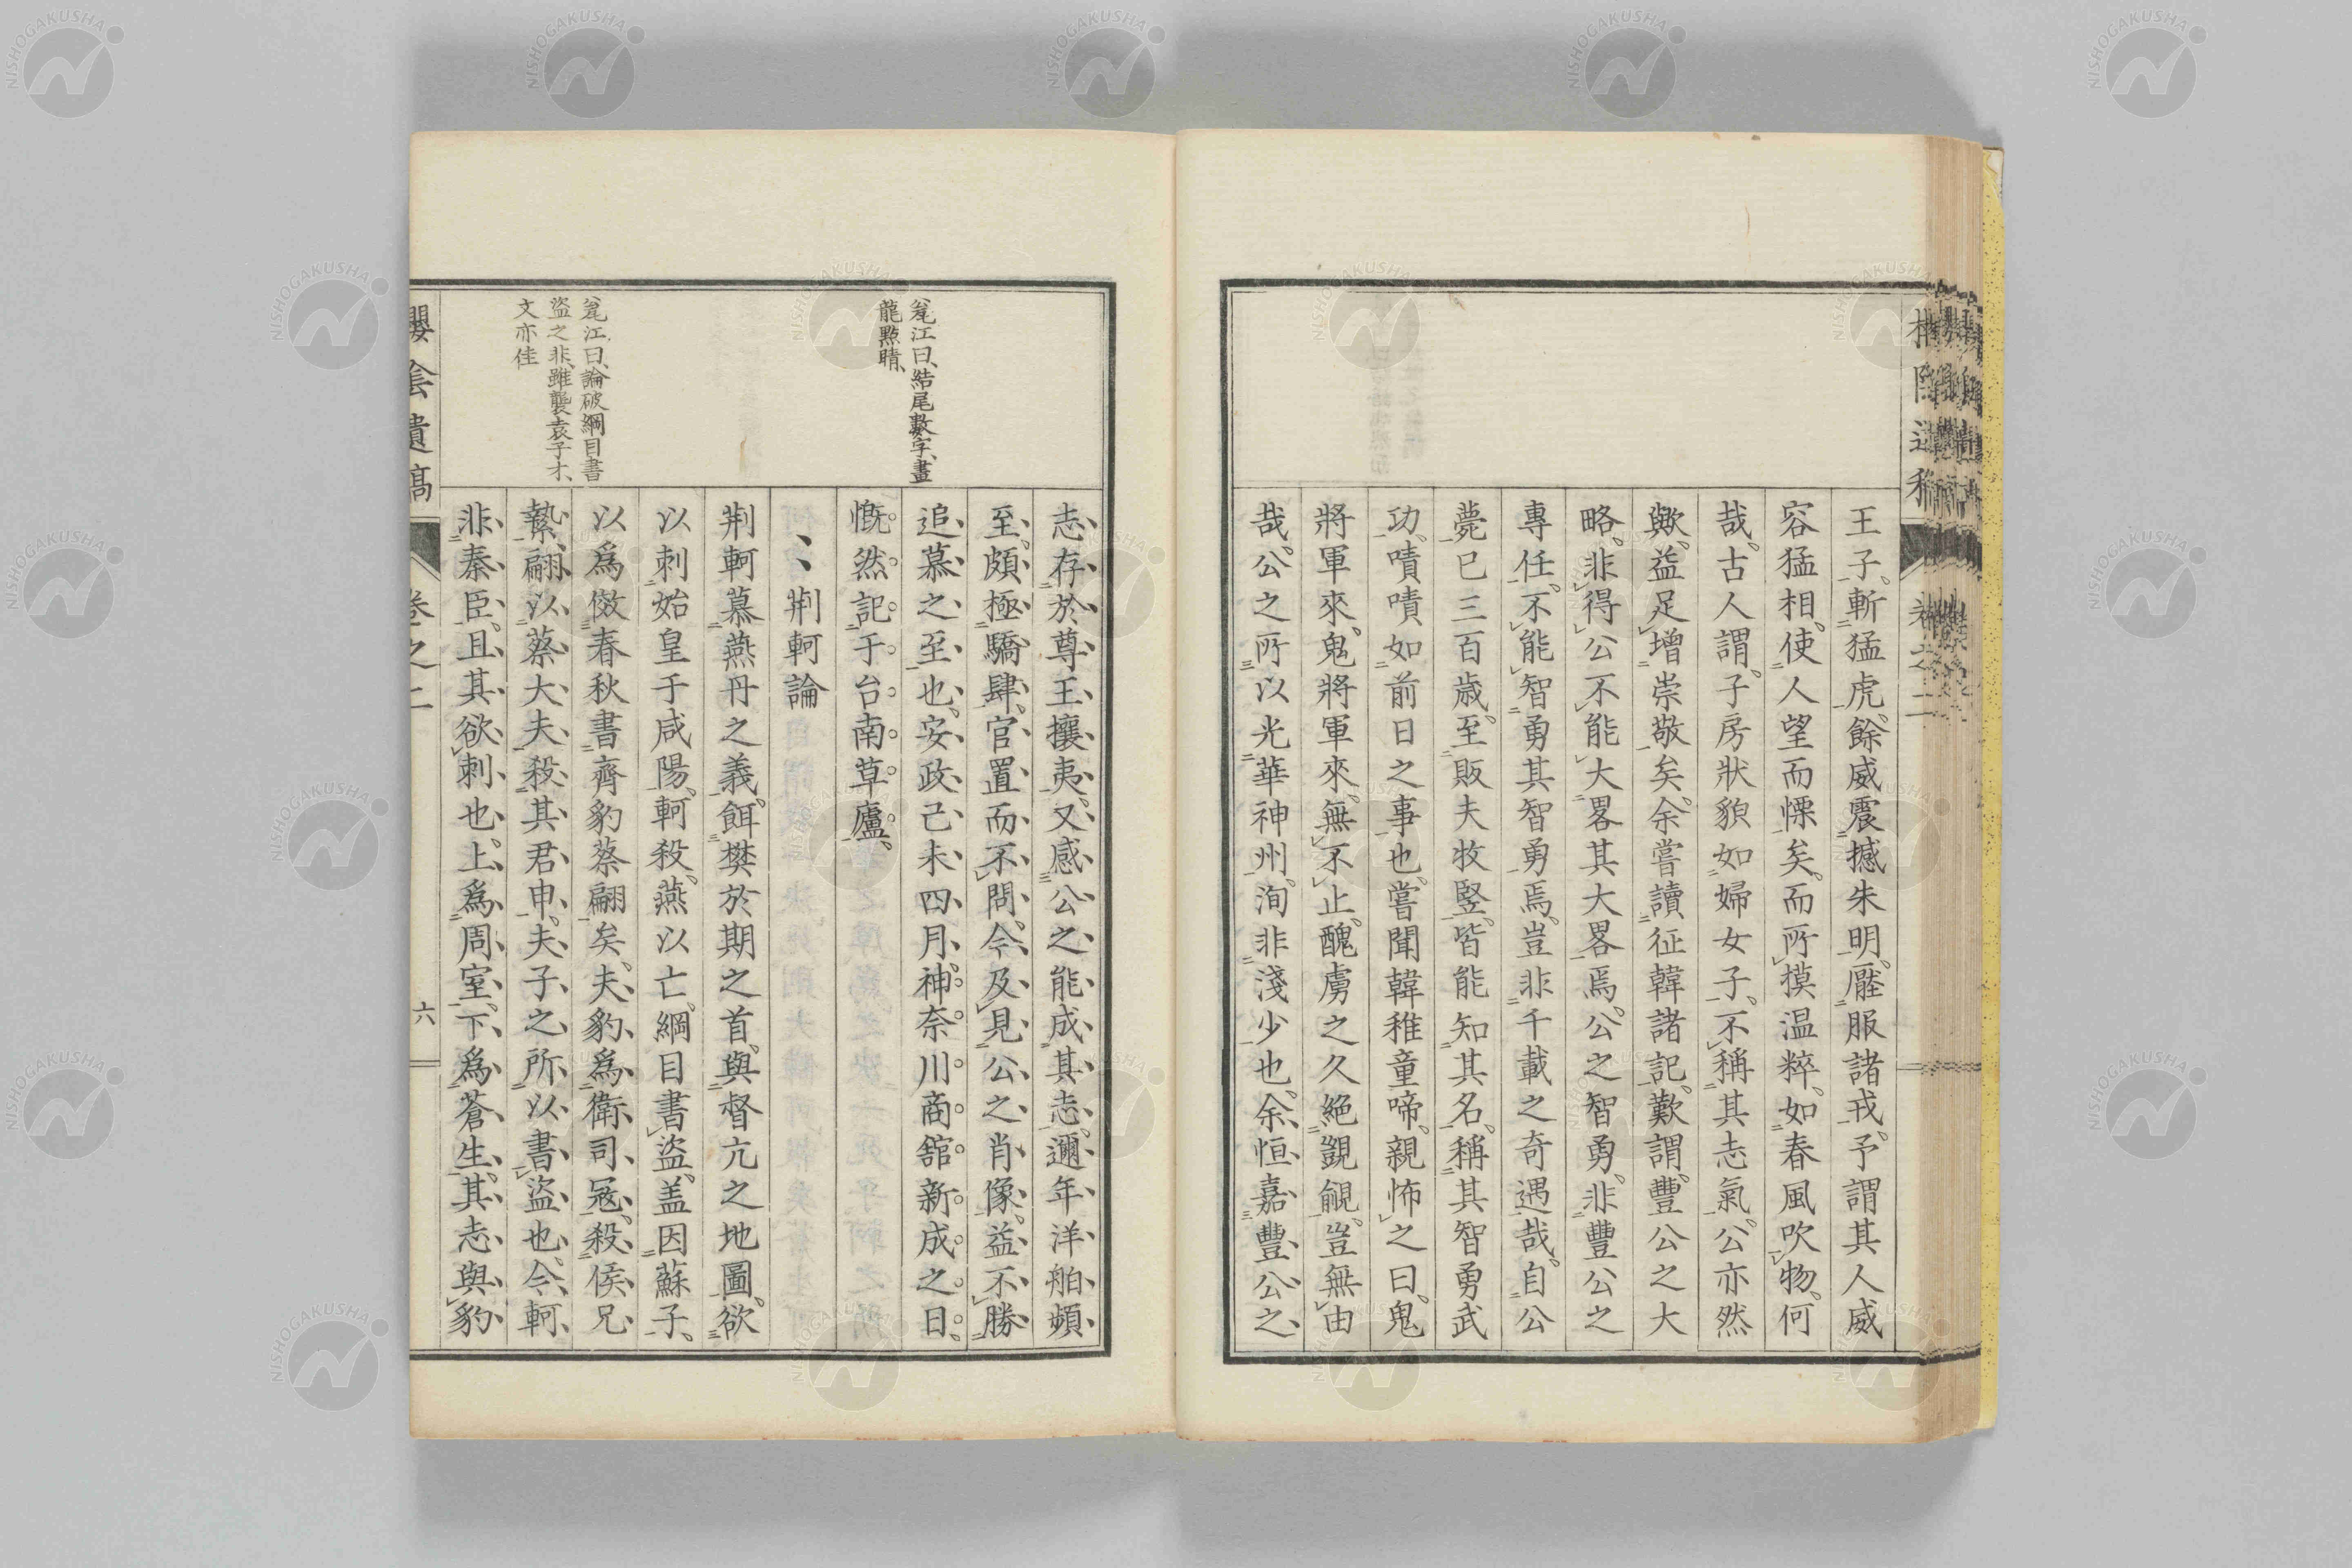 王子、斬猛虎、餘威震撼朱明、壓服諸戎、予謂其人威
容猛相、使人望而慄矣、而所摸温粹、如春風吹物、何
哉、古人謂、子房狀貌如婦女子、不稱其志氣、公亦然
歟、益足増崇敬矣、余嘗讀征韓諸記、歎謂、豐公之大
略、非得公不能大畧其大畧焉、公之智勇、非豐公之
專任、不能智勇其智勇焉、豈非千載之奇遇哉、自公
薨已三百歳、至販夫牧豎、皆能知其名、稱其智勇武
功、嘖嘖如前日之事也、嘗聞韓稚童啼、親怖之曰、鬼
將軍來、鬼將軍來、無不止、醜虜之久絶覬覦、豈無由
哉、公之所以光華神州、洵非淺少也、余恒嘉豐公之
志存於尊王攘夷、又感公之能成其志、邇年洋舶頻
至、頗極驕肆、官置而不問、今及見公之肖像、益不勝
追慕之至也、安政己未四月、神奈川商舘新成之日、
慨然記于台南草廬、
荊軻論
荊軻慕燕丹之義、餌樊於期之首、與督亢之地圖、欲
以刺始皇于咸陽、軻殺、燕以亡、綱目書盜、盖因蘇子、
以爲倣春秋書齊豹蔡翩矣、夫豹爲衛司冦、殺侯兄
縶、翩以蔡大夫、殺其君申、夫子之所以書盜也、今軻
非秦臣、且其欲刺也、上爲周室、下爲蒼生、其志與豹
瓮江曰、結尾數字、畫
龍㸃晴、
瓮江曰、論破綱目書
盜之非、雖襲袁子才、
文亦佳
櫻陰遺稿
卷之二
六